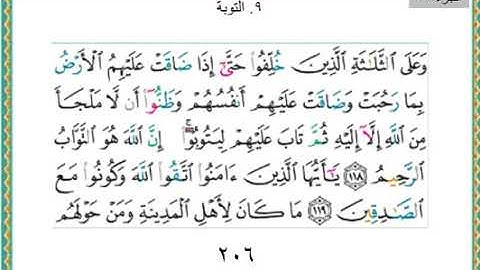 ٩. التوبة
وَعَلَى ٱلثَّلَٰثَةِ ٱلَّذِينَ خُلِّفُوا۟ حَتَّىٰٓ إِذَا ضَاقَتْ عَلَيْهِمُ ٱلْأَرْضُ
بِمَا رَحُبَتْ وَضَاقَتْ عَلَيْهِمْ أَنفُسُهُمْ وَظَنُّوٓا۟ أَن لَّا مَلْجَأَ
مِنَ ٱللَّهِ إِلَّآ إِلَيْهِ ثُمَّ تَابَ عَلَيْهِمْ لِيَتُوبُوٓا۟ۚ إِنَّ ٱللَّهَ هُوَ ٱلتَّوَّابُ
ٱلرَّحِيمُ ١١٨ يَٰٓأَيُّهَا ٱلَّذِينَ ءَامَنُوا۟ ٱتَّقُوا۟ ٱللَّهَ وَكُونُوا۟ مَعَ
ٱلصَّٰدِقِينَ ١١٩ مَا كَانَ لِأَهْلِ ٱلْمَدِينَةِ وَمَنْ حَوْلَهُم
٢٠٦